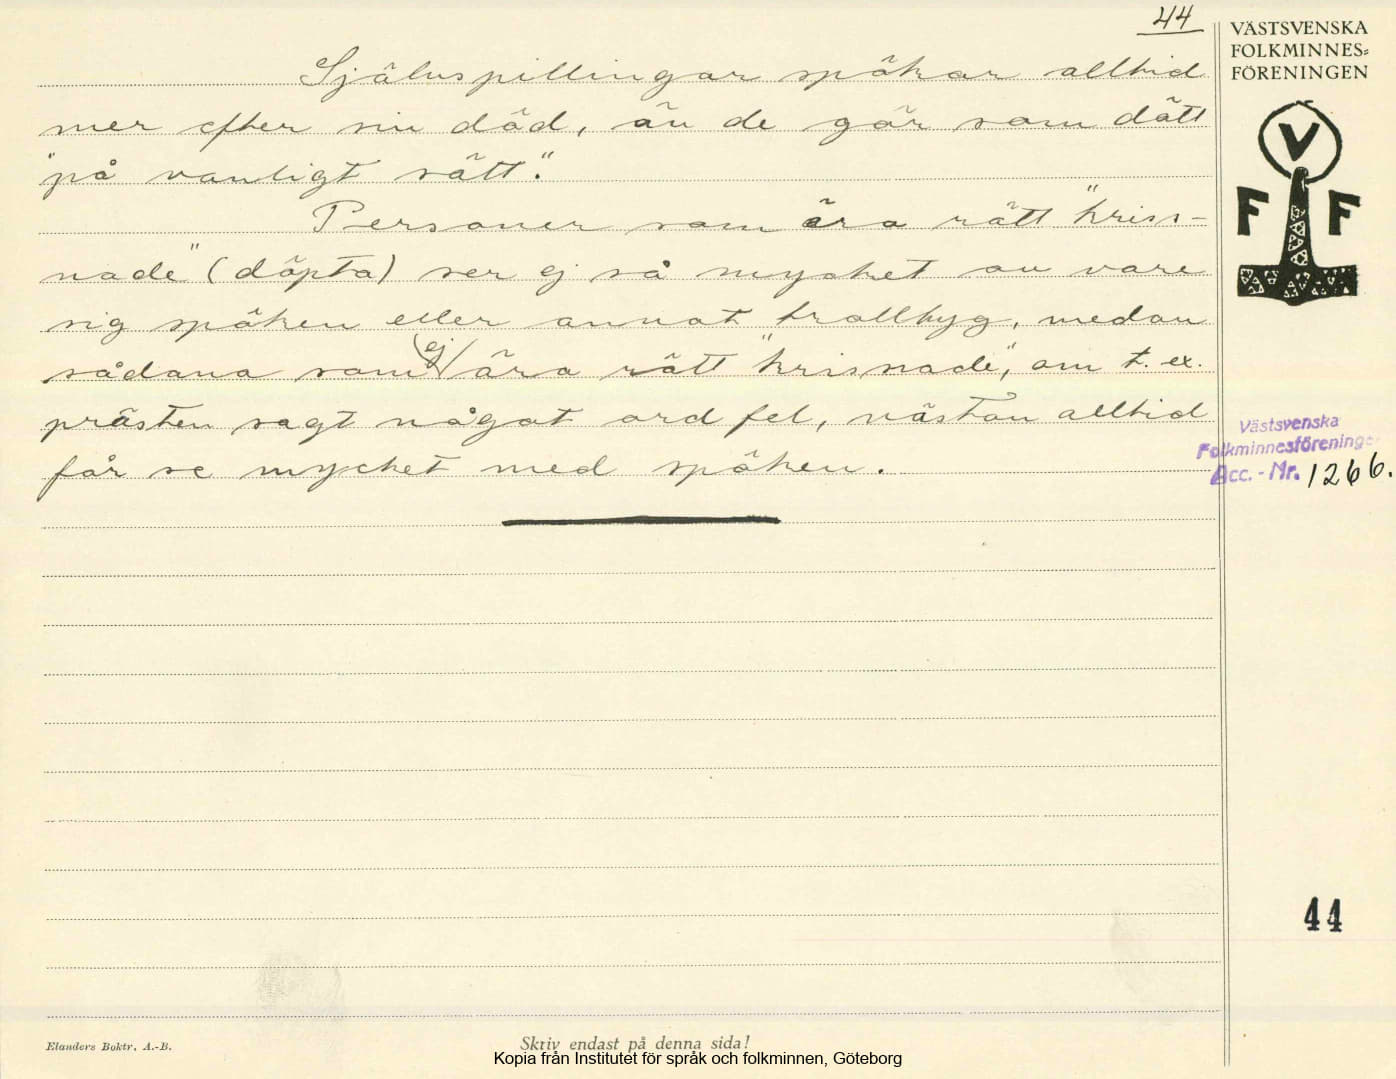 44
VÄSTSVENSKA
FOLKMINNES=
FÖRENINGEN
V
F F
Själuspillingar spökar alltid
mer efter sin död, än de gör som dött
"på vanligt sätt."
Personer som ära rätt "kriss-
nade" (döpta) ser ej så mycket av vare
sig spöken eller annat trolltyg, medan
sådana som ej ära rätt "krisnade", om t. ex.
prästen sagt något ord fel, nästan alltid
får se mycket med spöken.
Västsvenska
Folkminnesföreningen
Acc. - Nr. 1266.
44
Elanders Boktr. A.-B.
Skriv endast på denna sida!
Kopia från Institutet för språk och folkminnen, Göteborg